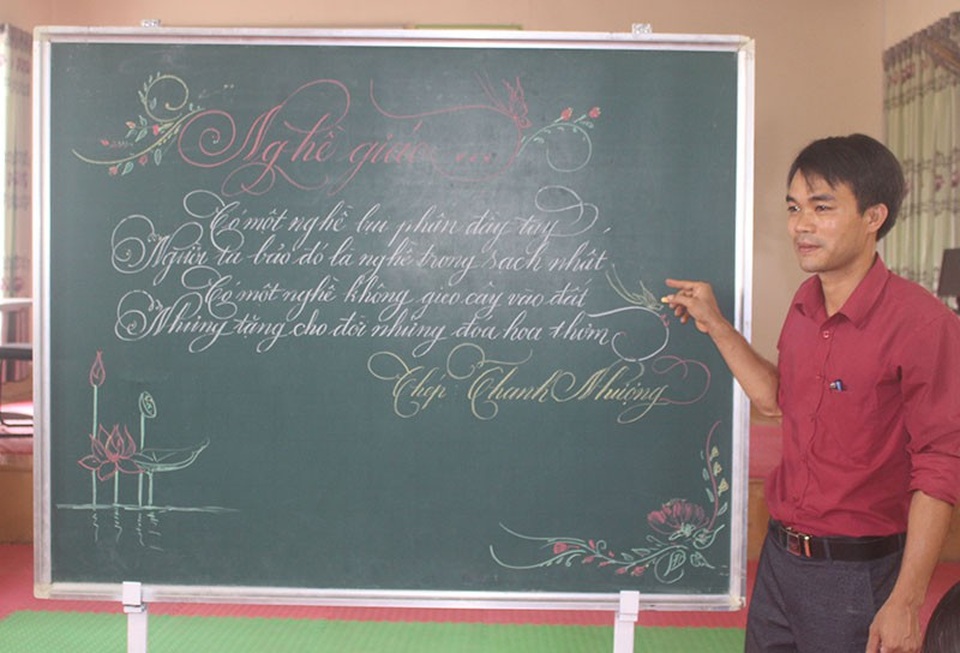 Nghề giáo ...
Có một nghề bụi phấn đầy tay
Người ta bảo đó là nghề trong sạch nhất
Có một nghề không gieo cây vào đất
Nhưng tặng cho đời những đóa hoa thơm
Chép: Thanh Nhượng